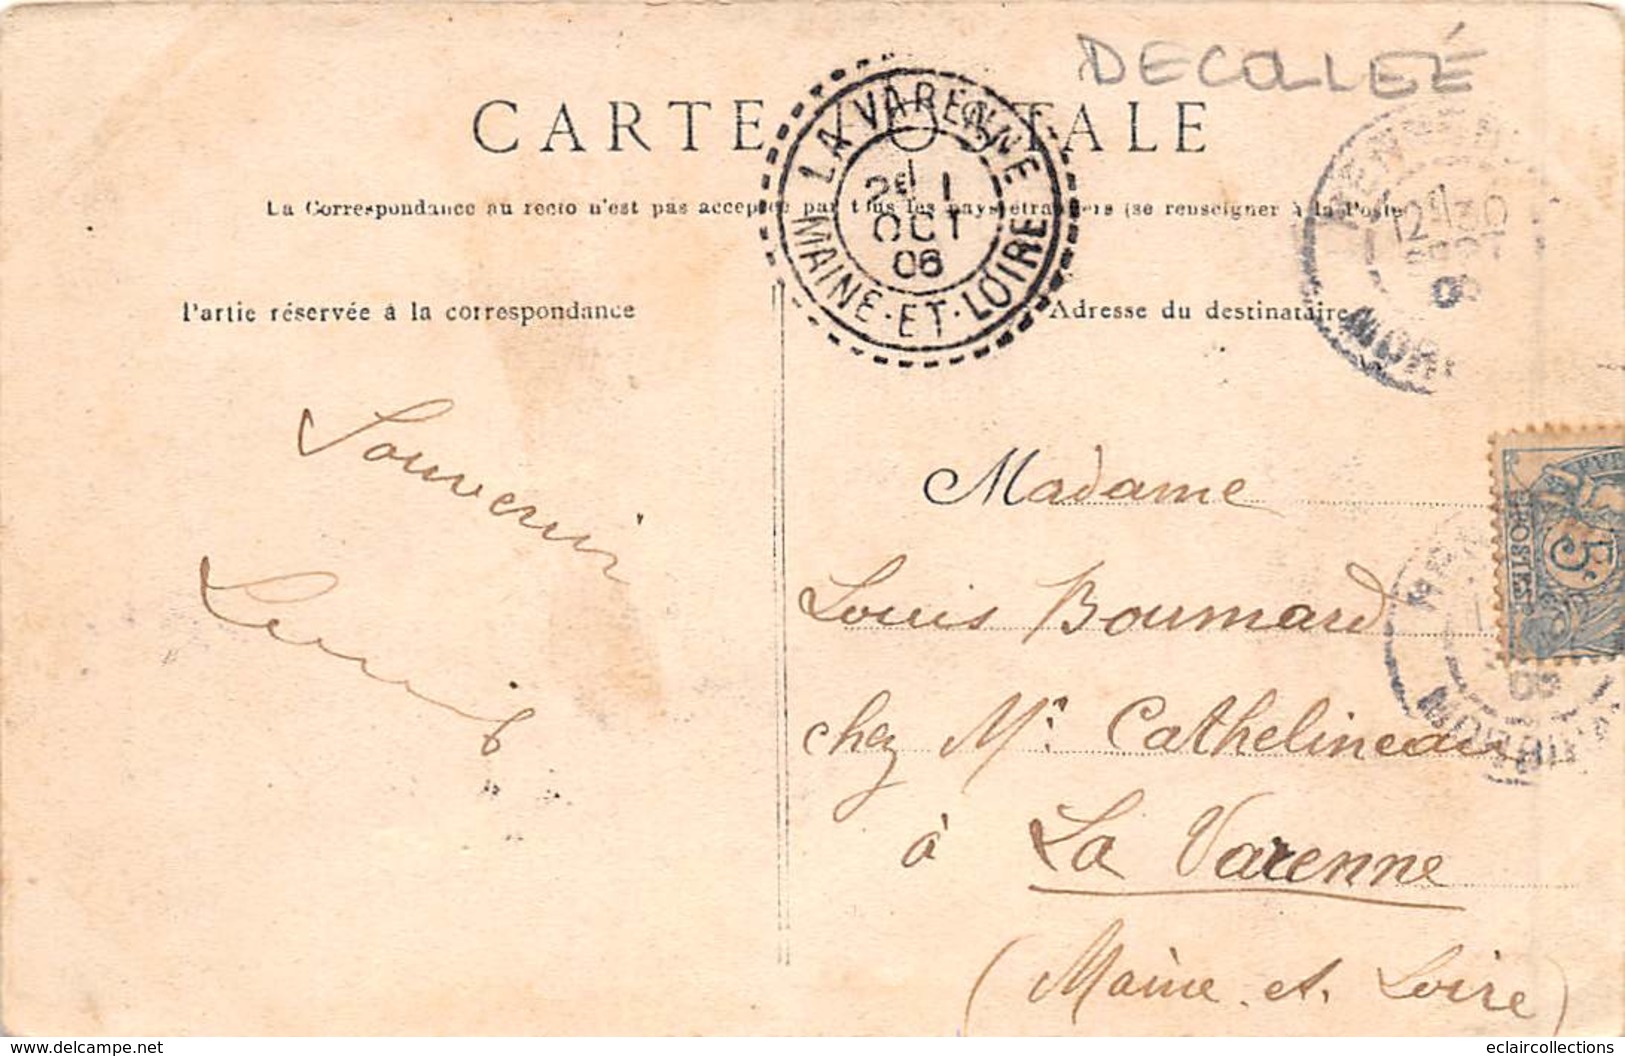 DECOLLEÉ
CARTE POSTALE
La Correspondance au recto n'est pas acceptée par tous les pays étrangers (se renseigner à la Poste
LA VARENNE
2E 1
OCT
06
MAINE-ET-LOIRE
12E 30
SEPT
06
MORB
Partie réservée à la correspondance
Adresse du destinataire
Souvenir
Louis
Madame
Louis Boumard
chez Mr. Cathelineau
à La Varenne
(Maine et Loire)
POSTES
5c
06
MORBI
delcampe.net
eclaircollections